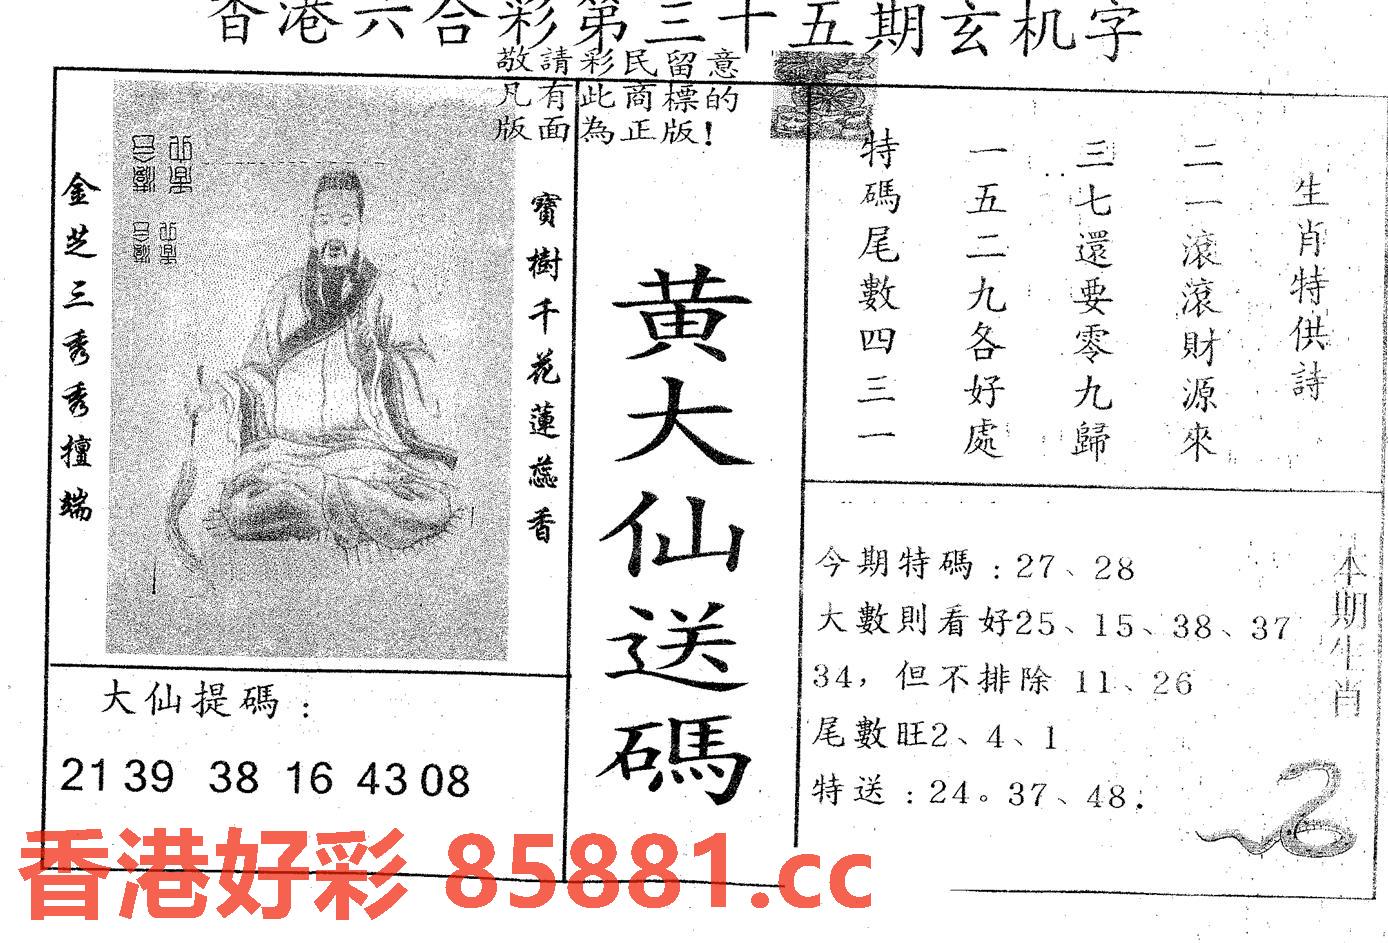 香港六合彩第三十五期玄机字
敬請彩民留意
凡有此商標的
版面為正版!
金芝三秀秀擅端
寶樹千花蓮蕊香
黄大仙送碼
大仙提碼:
21 39 38 16 43 08
生肖特供詩
二一滾滾財源來
三七還要零九歸
一五二九各好處
特碼尾數四三一
今期特碼:27、28
大數則看好25、15、38、37
34，但不排除 11、26
尾數旺2、4、1
特送:24。37、48.
本期生肖
香港好彩 85881.cc